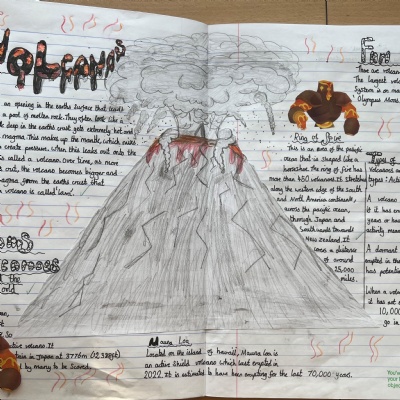 Volcanoes
an opening in the earths surface that leads
a pool of molten rock. They often look like a
deep in the earths crust gets extremely hot and
magma. This makes up the mantle, which rises
create pressure. When this leaks out onto the
is called a volcano. Over time, as more
out, the volcano becomes bigger and
magma from the earths crust that
a volcano is called 'lava'.
the
World
active volcano. It
in Japan at 3776m (12,388ft)
by many to be sacred.
Mauna Loa
Located on the island of hawaii, Mauna Loa is
an active shield volcano which last erupted in
2022. It is estimated to have been erupting for the last 70,000 years.
Ring of Fire
This is an area of the pacific
ocean that is shaped like a
horseshoe. The ring of fire has
more than 450 volcanoes. It stretches
along the western edge of the South
and North America continents,
across the pacific ocean,
through Japan and
Southwards towards
New Zealand. It
covers a distance
of around
25,000
miles.
Fun
There are volcano
The largest vol
System is on ma
Olympus Mons.
Types of
Volcanoes a
types: Acti
A volcano
if it has er
years or ha
activity mean
A dormant
erupted in the
has potential
When a vol
it has not e
10,000
go in
You've
your
objec